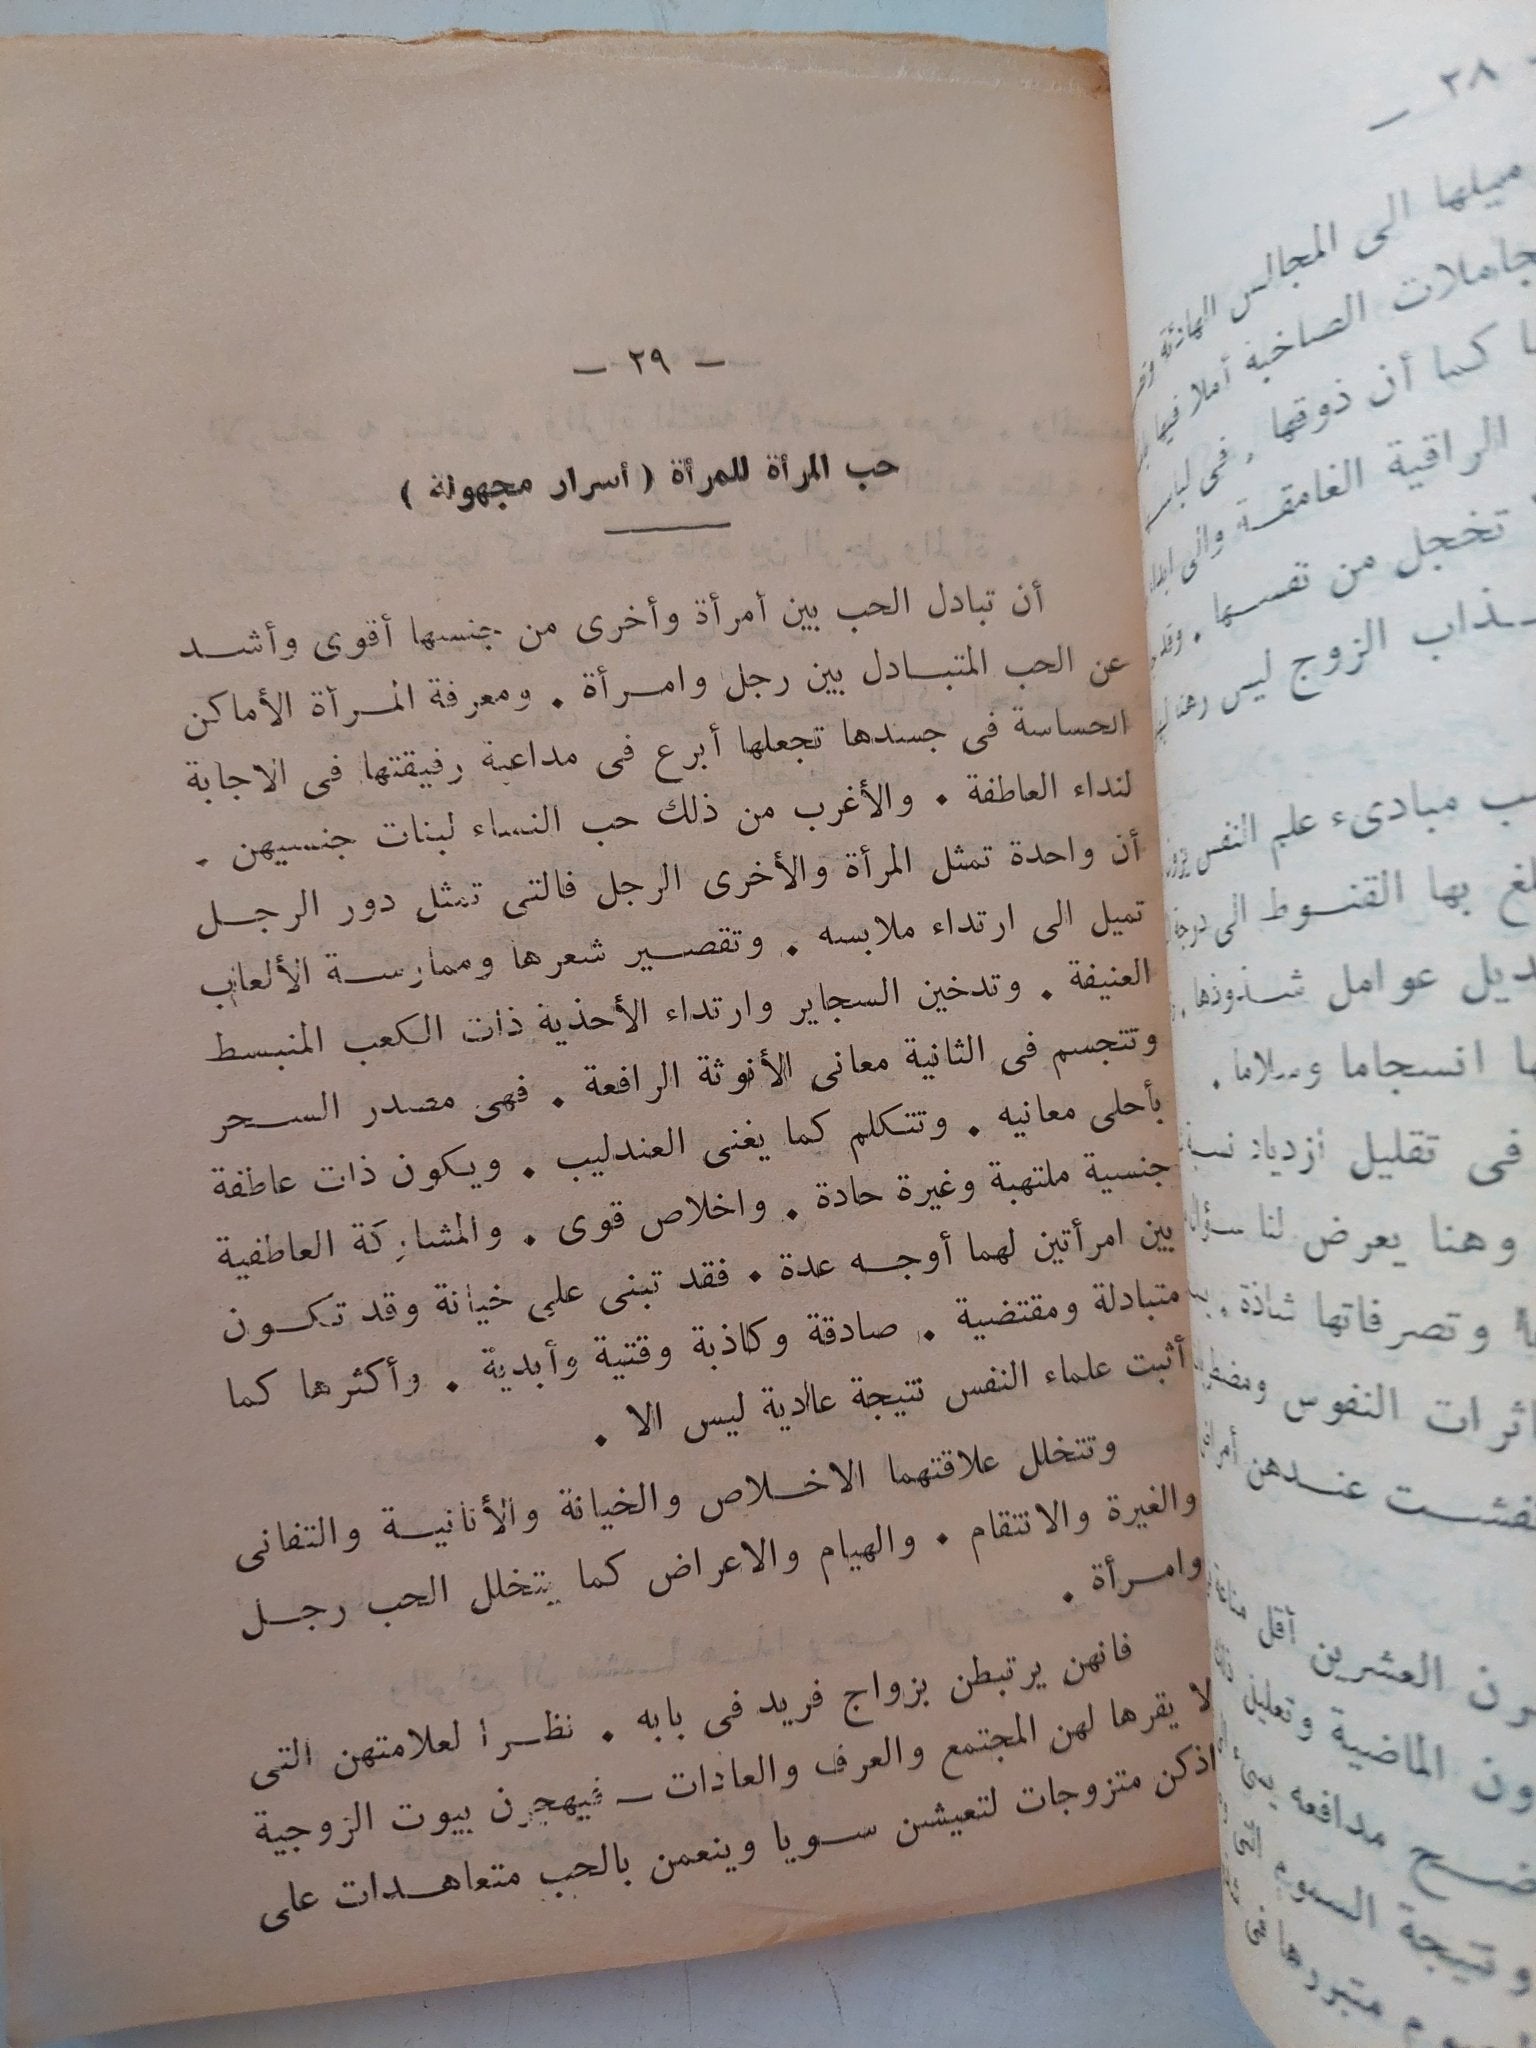 — ٢٩ —
حب المرأة للمرأة ( أسرار مجهولة )
أن تبادل الحب بين أمرأة وأخرى من جنسها أقوى وأشد
عن الحب المتبادل بين رجل وامرأة . ومعرفة المرأة الأماكن
الحساسة فى جسدها تجعلها أبرع فى مداعبة رفيقتها فى الاجابة
لنداء العاطفة . والأغرب من ذلك حب النساء لبنات جنسيهن .
أن واحدة تمثل المرأة والأخرى الرجل فالتى تمثل دور الرجل
تميل الى ارتداء ملابسه . وتقصير شعرها وممارسة الألعاب
العنيفة . وتدخين السجاير وارتداء الأحذية ذات الكعب المنبسط
وتتجسم فى الثانية معانى الأنوثة الرافعة . فهى مصدر السحر
بأحلى معانيه . وتتكلم كما يغنى العندليب . ويكون ذات عاطفة
جنسية ملتهبة وغيرة حادة . واخلاص قوى . والمشاركة العاطفية
بين امرأتين لهما أوجه عدة . فقد تبنى على خيانة وقد تكون
متبادلة ومقتضية . صادقة وكاذبة وقتية وأبدية . وأكثرها كما
أثبت علماء النفس نتيجة عادية ليس الا .
وتتخلل علاقتهما الاخلاص والخيانة والأنانية والتفانى
والغيرة والانتقام . والهيام والاعراض كما يتخلل الحب رجل
وامرأة .
فانهن يرتبطن بزواج فريد فى بابه . نظرا لعلامتهن التى
لا يقرها لهن المجتمع والعرف والعادات — فيهجرن بيوت الزوجية
اذكن متزوجات لتعيشن سويا وينعمن بالحب متعاهدات على
٢٨ —
ميلها الى المجالس الهادئة
الصاخبة أملا فيها
كما أن ذوقها . فى لباس
الراقية الغامقة والى
تخجل من نفسها .
الزوج ليس
مبادىء علم النفس
بها القنوط الى درجة
عوامل شذوذها .
انسجاما وسلاما .
فى تقليل ازدياد نسبة
وهنا يعرض لنا
وتصرفاتها شاذة .
النفوس
عندهن
العشرين أقل
الماضية وتعليل
مدافعه
ونتيجة